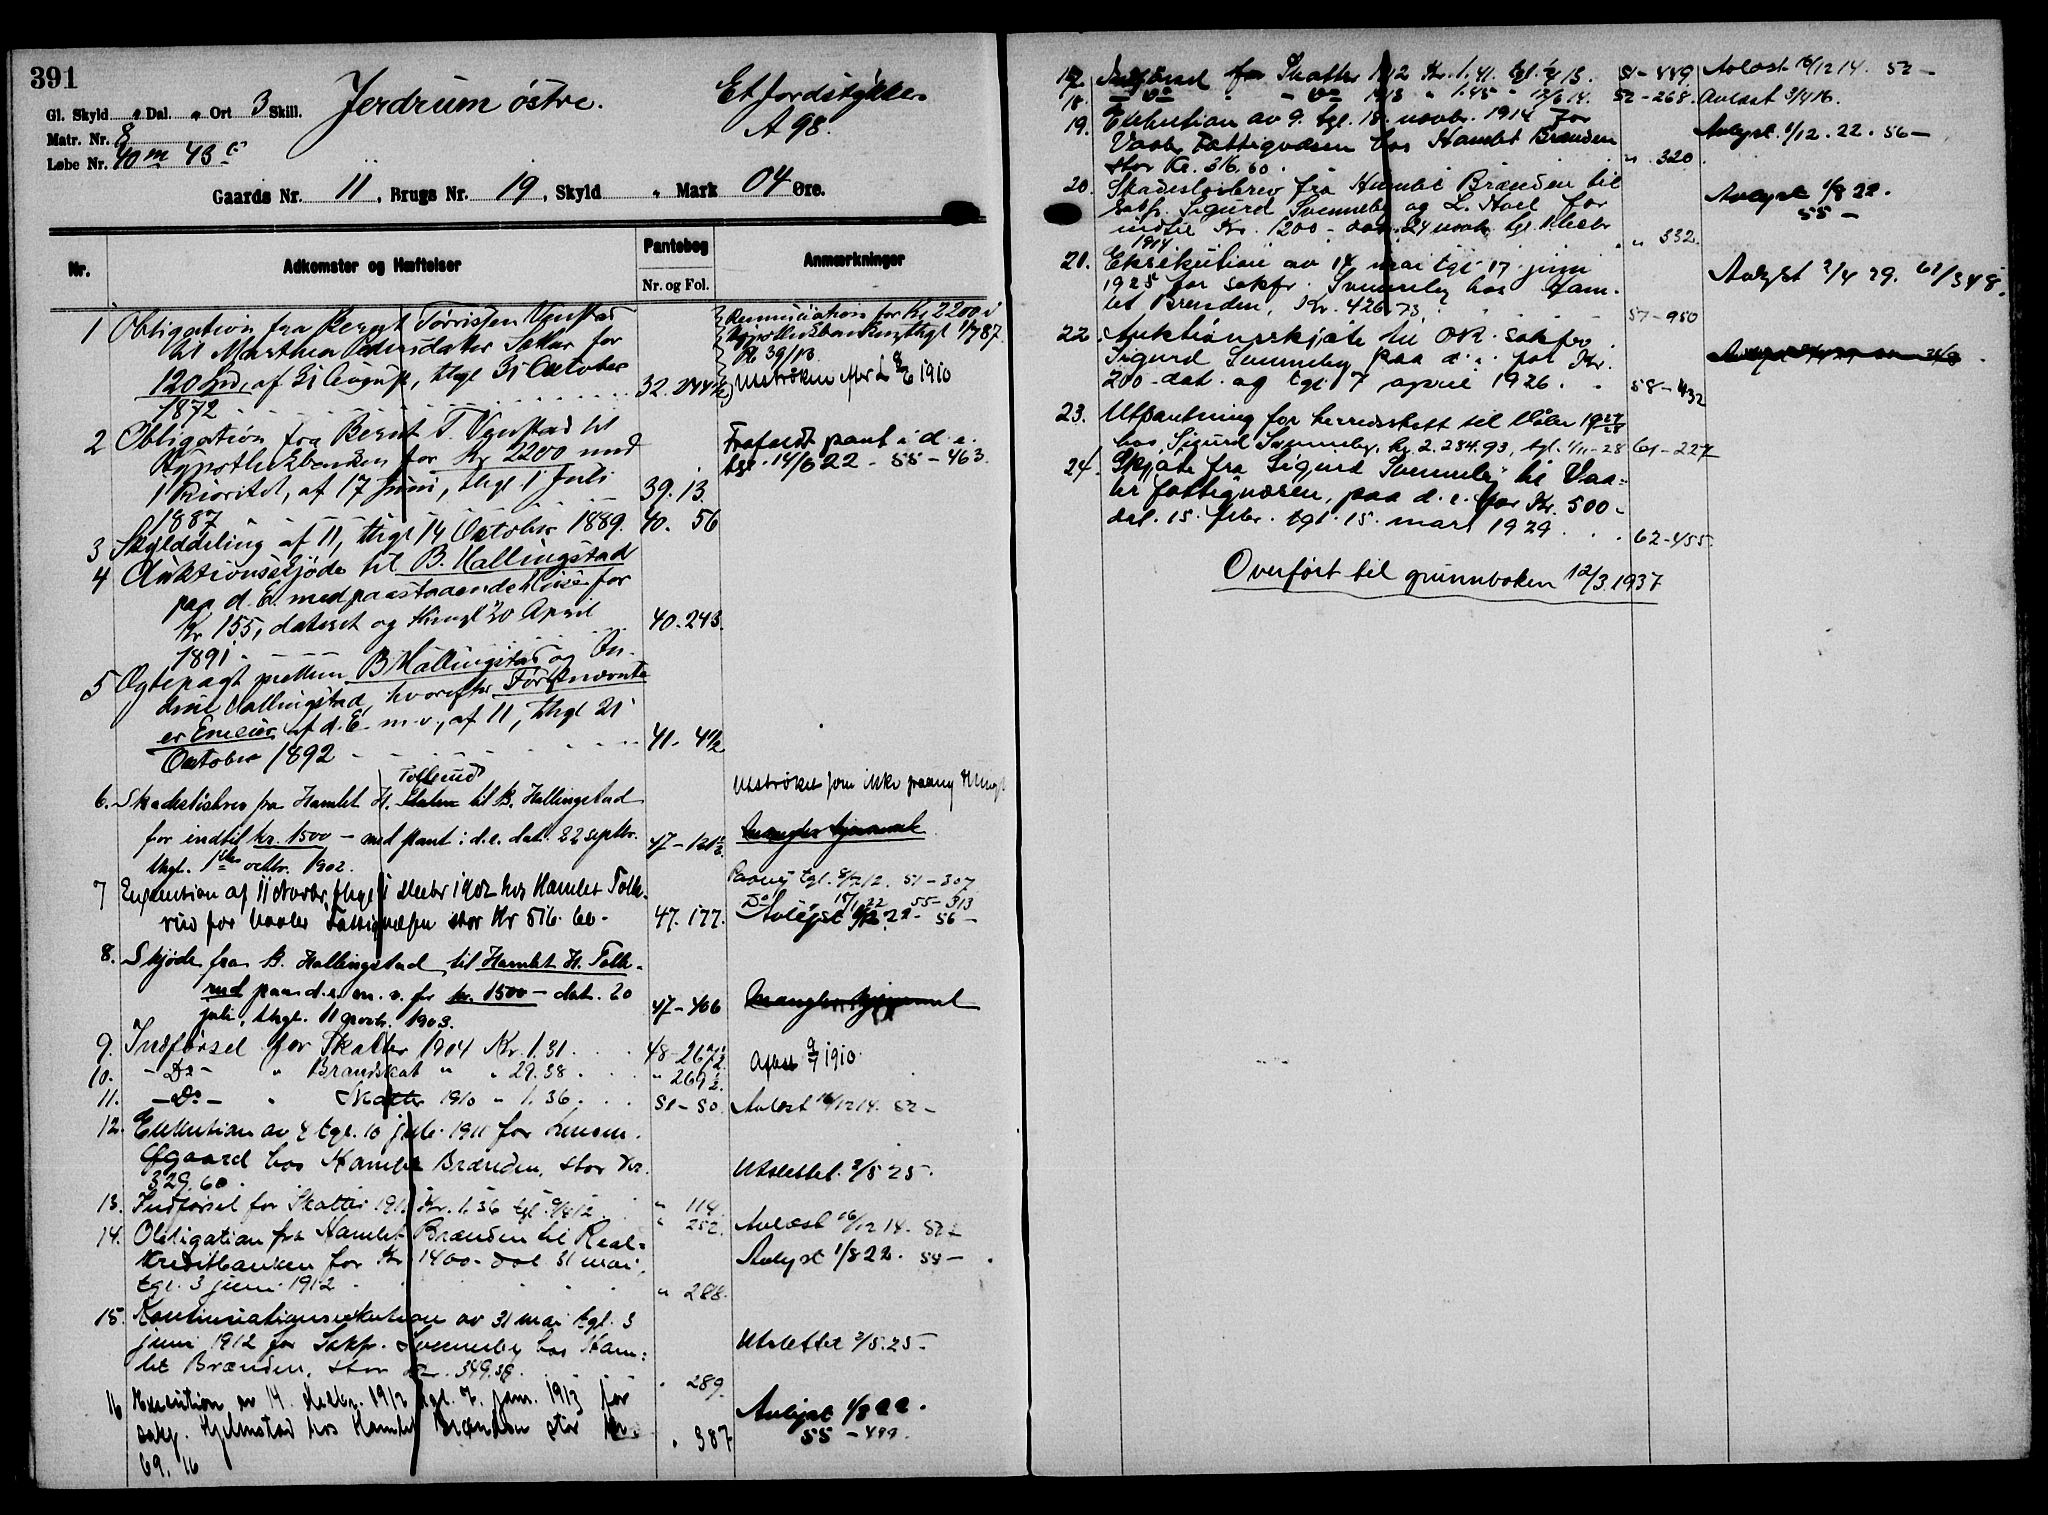 391
Gl. Skyld " Dal. " Ort 3 Skill.
Matr. Nr. 8
Løbe Nr. 40 m 43 c
Jerdrum østre.
Et Jordstykke
A 98.
Gaards Nr. 11, Brugs Nr. 19, Skyld " Mark 04 Øre.
Nr.
Adkomster og Hæftelser
Pantebog
Nr. og Fol.
Anmærkninger
1 Obligation fra Berngt Torristen Ugustad
til Marthea Pedersdatter for
120 Spd, af 31 August, thgl 31 October
1872 32. 244
Renunciation for Kr 2200 i
Hypothekbanken, thgl 1/7 87
Pb 39/13
Udstrøken 1910
2 Obligation fra Bernt T. Ugustad til
Hypothekbanken for Kr 2200 med
1 Prioritet, af 17 Juni, thgl 1 Juli
1887 39. 13.
Frafaldt pant i d. e.
tgl. 14/6 22 - 55 - 463.
3 Skylddeling af 11, thgl 14 October 1889. 40. 56
4 Auktionsskjøde til B. Hallingstad
paa d. E. med paastaaende Huse for
Kr 155, dateret og thingl 20 April
1891. 40. 243.
5 Egtepagt mellem B Hallingstad og
Hallingstad, hvorefter Førstnævnte
er Eneeier af d. E. m. v., af 11, thgl 21
October 1892 41.
6. Skadesløsbrev fra Hamlet H. Tollerud til B. Hallingstad
for indtil kr. 1500 - med pant i d. e. dat. 22 septbr.
thgl. 1 octbr. 1902. 47 - 121
Utstrøket som ikke paany thingl
Mangler hjemmel
7 Execution af 11 Novbr, thgl 1 Decbr 1902 hos Hamlet Tolle-
rud for Vaaler Fattigvæsen stor Kr 516. 60 - 47. 177.
Paany tgl. 51 - 307
Do 55 - 313
Avlyst 22 - 56 -
8. Skjøde fra B. Hallingstad til Hamlet H. Tolle-
rud paa d. e. m. v. for kr. 1500 - dat. 20
juli, thgl. 11 novb. 1903. 47 - 406
Mangler hjemmel
9. Indførsel for Skatter 1904 Kr. 1.31 48 - 267
10. - Do - " Brandskat " " 29.38 " 269
Aflæst 1910.
11. - Do - " Skatter 1910 " 1.36 51 - 50.
Avlæst 16/12 14. 52 -
12. Exekution av 4 tgl. 10 juli 1911 for
hos Hamlet Brænden, stor Kr.
329.60. " 114.
Utslettet. 2/5 25.
13. Indførsel for Skatter 191 Kr. 1.36 " 252.
Avlæst 16/12 14. 52 -
14. Obligation fra Hamlet Brænden til Real-
kreditbanken for Kr. 1400 - dat 31 mai,
tgl. 3 juni 1912 " 288.
Avlyst 1/8 22.
15. Kontinuationsexekution av 31 mai tgl. 3
juni 1912 for Sakf. Svenneby hos Ham-
let Brænden, stor Kr. 349.38. " 289.
Utslettet 2/5. 25.
16 Execution av 14. decbr. 1912 tgl. 7. jan. 1913 for
sakf. Hjelmstad hos Hamlet Brænden stor Kr.
69. 16 " 387
Avlyst 1/8 22.
55 - 499.
17. Indførsel for Skatter 1912 Kr. 1.41. 51 - 449.
Avlæst 16/12 14. 52 -
18. - Do " - Do 1913 " 1.45 " 14. 52 - 268.
Avlæst 3/4 16.
19. Exekution av 9. tgl. 18. novbr. 1914 for
Vaaler Fattigvæsen hos Hamlet Brænden
stor Kr. 316.60. " 320.
Avlyst. 1/12. 22. 56 -
20. Skadesløsbrev fra Hamlet Brænden til
sakf. Sigurd Svenneby og L. Hoel for
indtil Kr. 1200 - dat. 24 novbr. tgl. 1 decbr
1914 " 332.
Avlyst 1/8 22.
55 -
21. Eksekution av 14 mai tgl. 17 juni
1925 for sakfr. Svenneby hos Ham-
let Brenden, Kr. 426.73. 57 - 950
Avlyst 2/4 29. 61/348.
22 Auktionsskjøte til OR. sakfr.
Sigurd Svenneby paa d. e. for Kr.
200 - dat. og tgl. 7 april 1926. 58 - 432
23. Utpantning for herredsskatt til Våler 1927/28
hos Sigurd Svenneby, kr. 2.234.93, tgl. 1/11 - 28 61 - 227
24. Skjøte fra Sigurd Svenneby til Vaa-
ler fattigvæsen, paa d. e. for Kr. 500 -
dat. 15. febr. tgl. 15. mars 1929. 62 - 455.
Overført til grunnboken 12/3. 1937